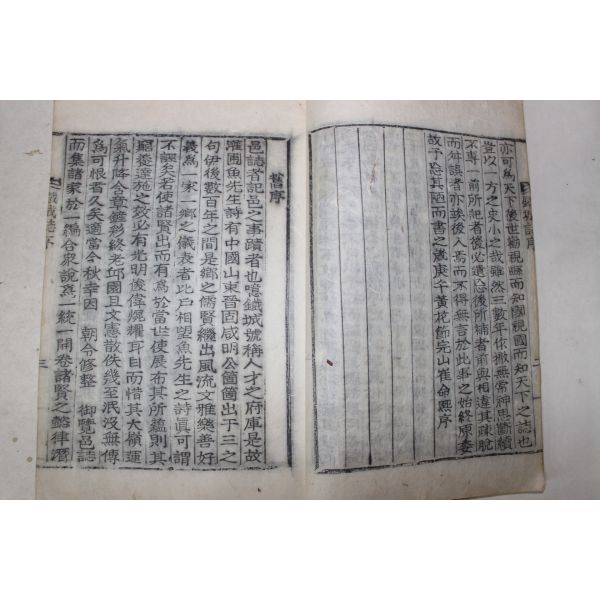 亦可爲天下後世勸視縣而知國視國而知天下之誌也
豈以一方之史小之哉雖然三數年作撤無常神思斷續
不專一前所記者後必遺忘後所補者前與相違其疎脫
而舛誤者亦竢後人焉而不得無言於此事之始終原委
故予忘其陋而書之歲庚午黃花節完山崔命熙序
舊序
邑誌者記邑之事蹟者也噫鐵城號稱人才之府庫是故
灌圃魚先生詩有中國山東晉固咸明公箇箇出于三之
句伊後數百年之間是鄕之儒賢繼出風流文雅樂善好
義爲一家一鄕之儀表者比戶相望魚先生之詩眞可謂
不誣矣若使諸賢出而有爲於當世使展布其所蘊則其
顯養達施之效必有光明俊偉焜耀耳目而惜其大嶺運
氣升降含章鏟彩終老丘園且文憲散佚幾至泯沒無傳
爲可恨者久矣適當今秋幸因 朝令修整 御覽邑誌
而集諸家於一編合衆說爲一統一開卷諸賢之懿律潛
鐵城誌序
二
三